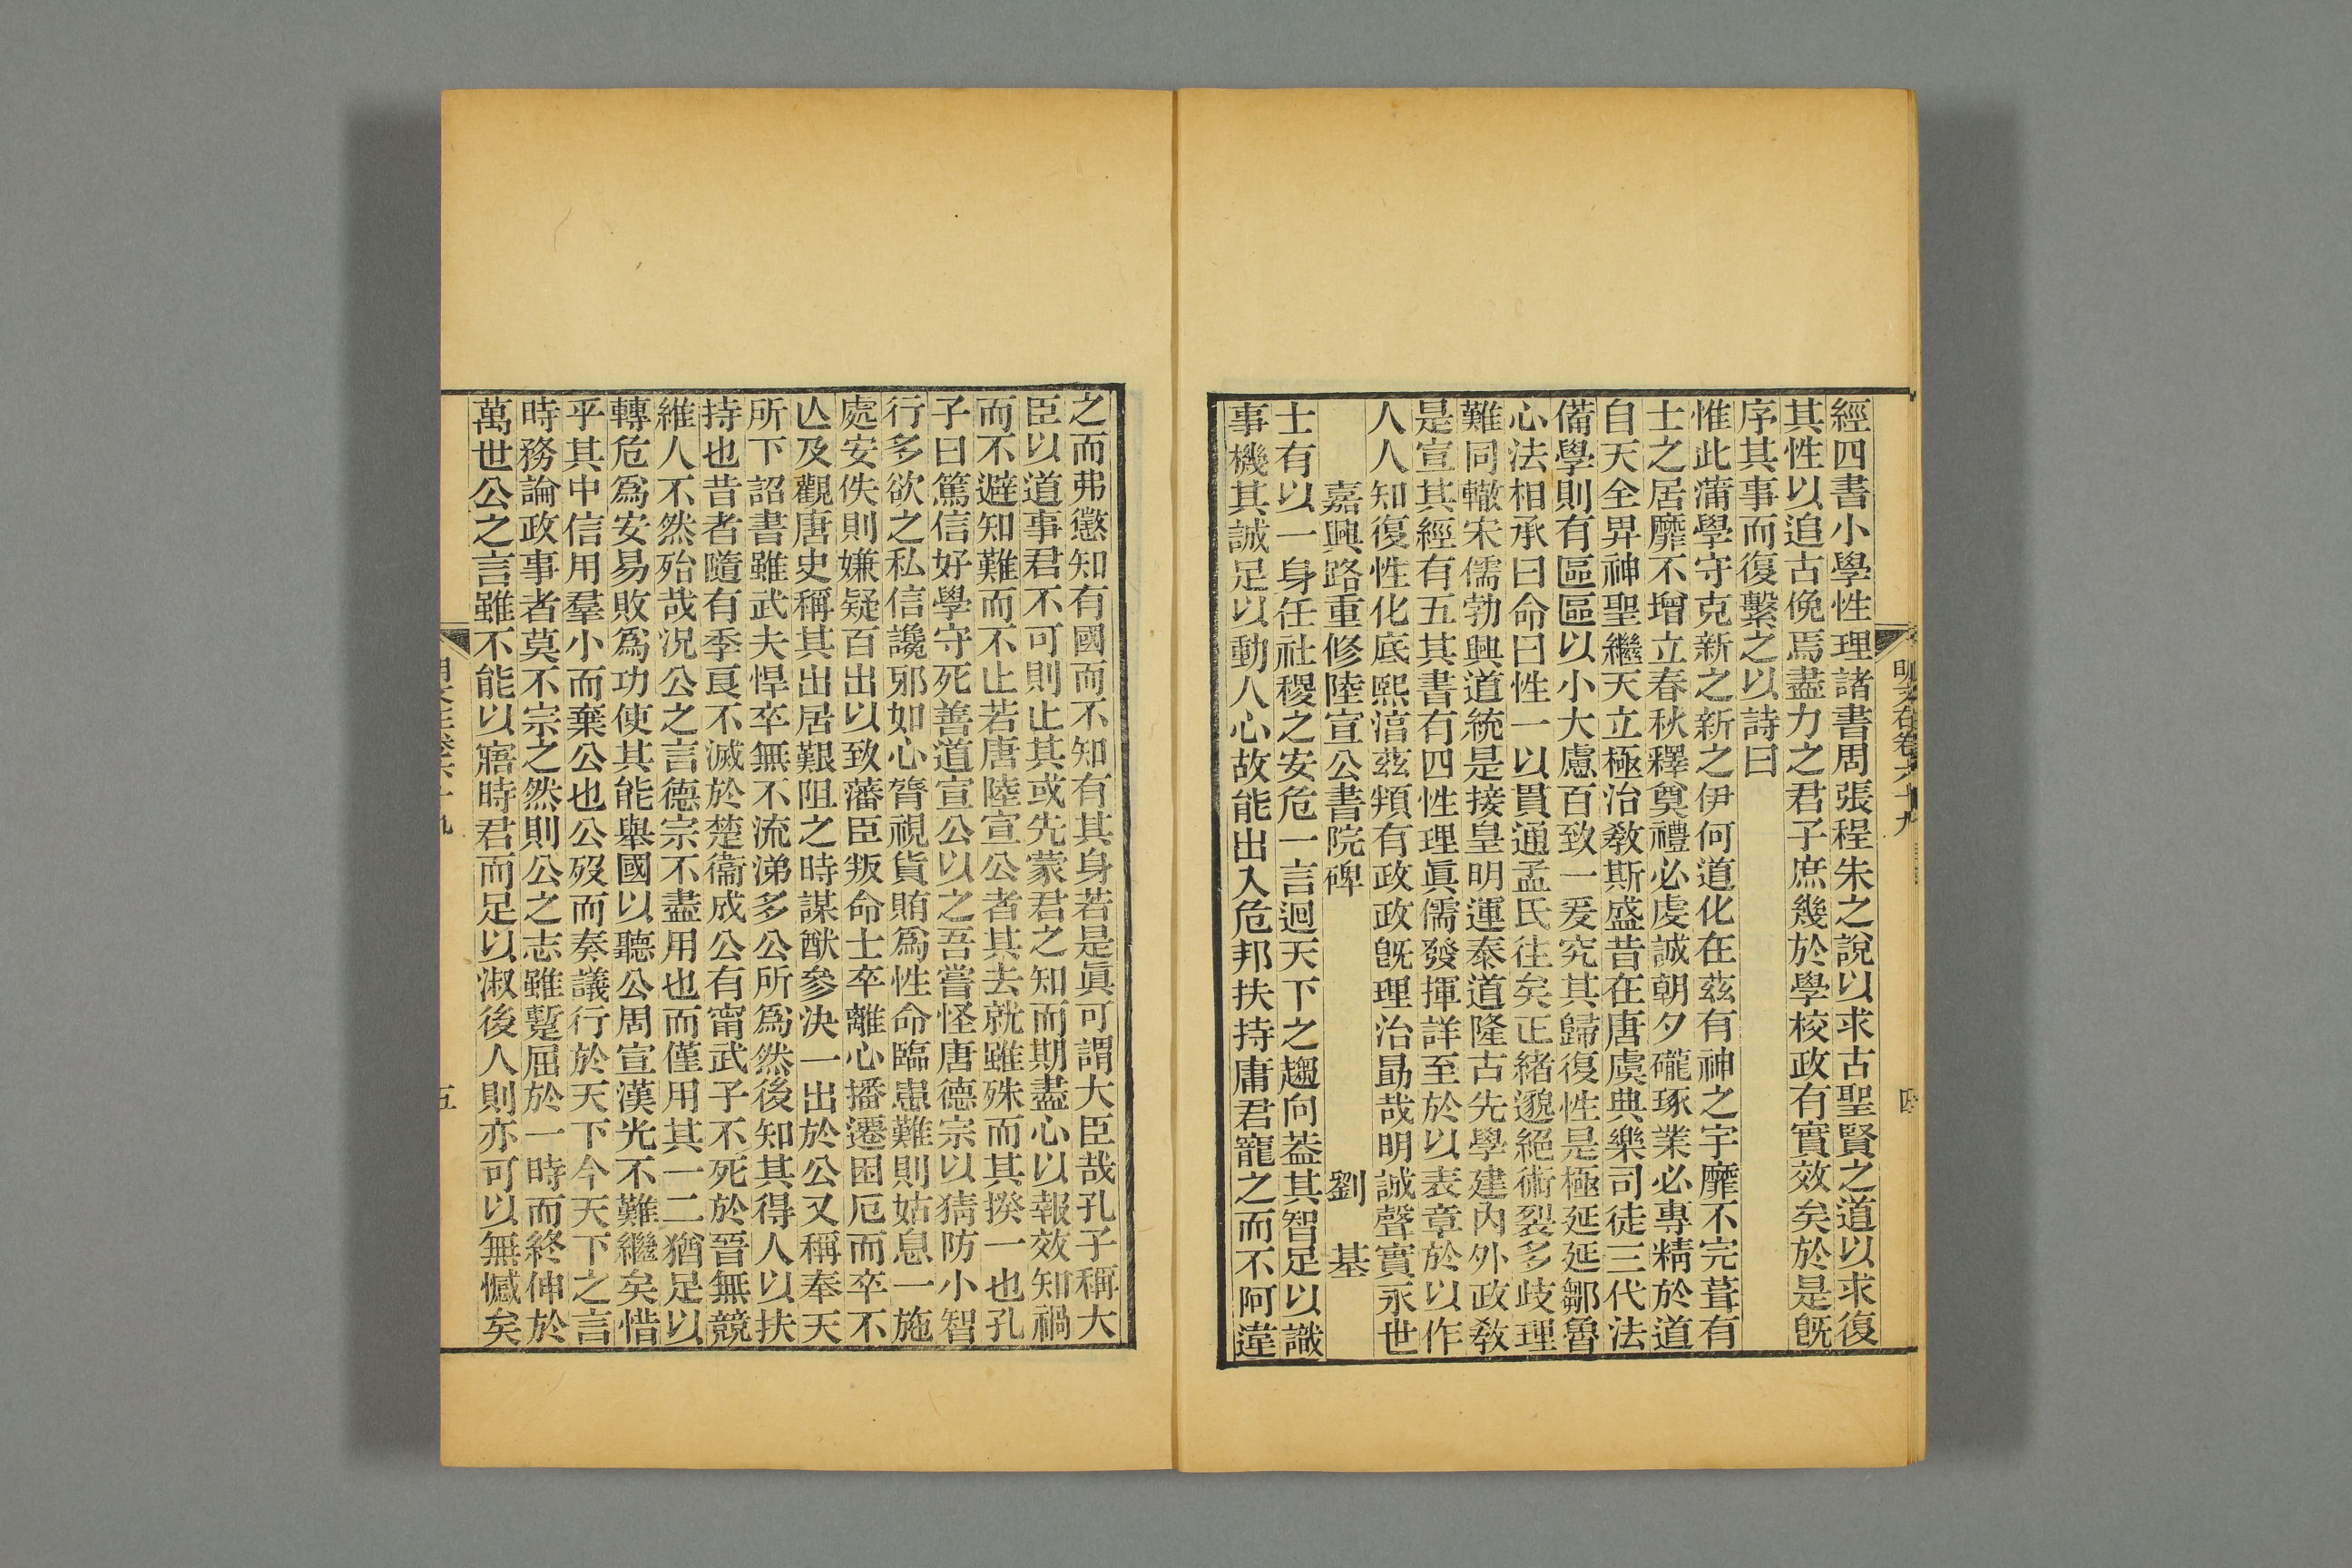 明文在卷六十九
四
經四書小學性理諸書周張程朱之說以求古聖賢之道以求復
其性以追古俛焉盡力之君子庶幾於學校政有實效矣於是旣
序其事而復繫之以詩曰
惟此蒲學守克新之新之伊何道化在茲有神之宇靡不完葺有
士之居靡不增立春秋釋奠禮必虔誠朝夕礲琢業必專精於道
自天全畀神聖繼天立極治敎斯盛昔在唐虞典樂司徒三代法
備學則有區區以小大慮百致一爰究其歸復性是極延延鄒魯
心法相承曰命曰性一以貫通孟氏往矣正緖邈絕術裂多歧理
難同轍宋儒勃興道統是接皇明運泰道隆古先學建內外政敎
是宣其經有五其書有四性理眞儒發揮詳至於以表章於以作
人人知復性化底熙湻茲頖有政政旣理治勗哉明誠聲實永世
嘉興路重修陸宣公書院碑　劉　基
士有以一身任社稷之安危一言迴天下之趨向葢其智足以識
事機其誠足以動人心故能出入危邦扶持庸君寵之而不阿違
之而弗懲知有國而不知有其身若是眞可謂大臣哉孔子稱大
臣以道事君不可則止其或先蒙君之知而期盡心以報效知禍
而不避知難而不止若唐陸宣公者其去就雖殊而其揆一也孔
子曰篤信好學守死善道宣公以之吾嘗怪唐德宗以猜防小智
行多欲之私信讒邪如心膂視貨賄爲性命臨患難則姑息一施
處安佚則嫌疑百出以致藩臣叛命士卒離心播遷困厄而卒不
亾及觀唐史稱其出居艱阻之時謀猷參決一出於公又稱奉天
所下詔書雖武夫悍卒無不流涕多公所爲然後知其得人以扶
持也昔者隨有季良不滅於楚衞成公有甯武子不死於晉無競
維人不然殆哉況公之言德宗不盡用也而僅用其一二猶足以
轉危爲安易敗爲功使其能舉國以聽公周宣漢光不難繼矣惜
乎其中信用羣小而棄公也公歿而奏議行於天下今天下之言
時務論政事者莫不宗之然則公之志雖蹔屈於一時而終伸於
萬世公之言雖不能以寤時君而足以淑後人則亦可以無憾矣
五